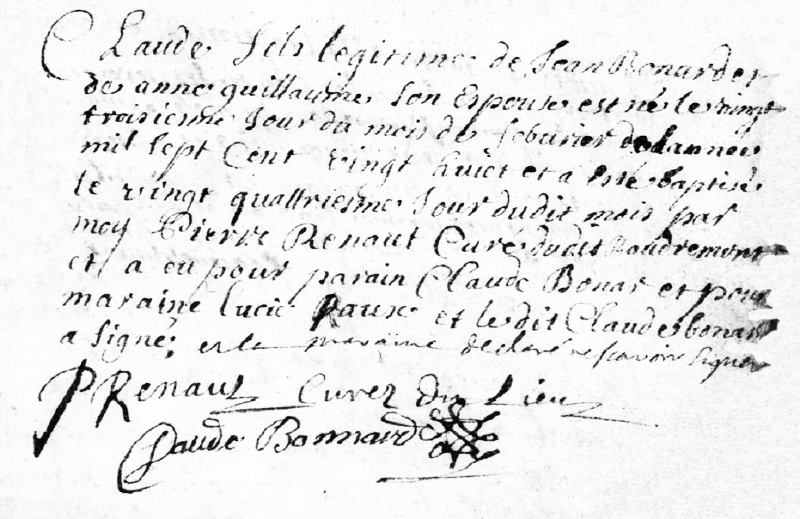 Claude fils legitime de Jean Bonard et
de anne guillaume son Espouse est né le vingt
troisieme Jour du mois de feburier de lannée
mil sept Cent vingt huict et a este baptisé
le vingt quattriesme Jour dudit mois par
moy Pierre Renaut Curé dudit Vaudremont
et a eu pour parain Claude Bonar et pour
maraine lucie Paux et ledit Claude bonar
a signé, et la maraine declaré ne scavoir signer
PRenaut Curez du Lieu
Claude Bonnard